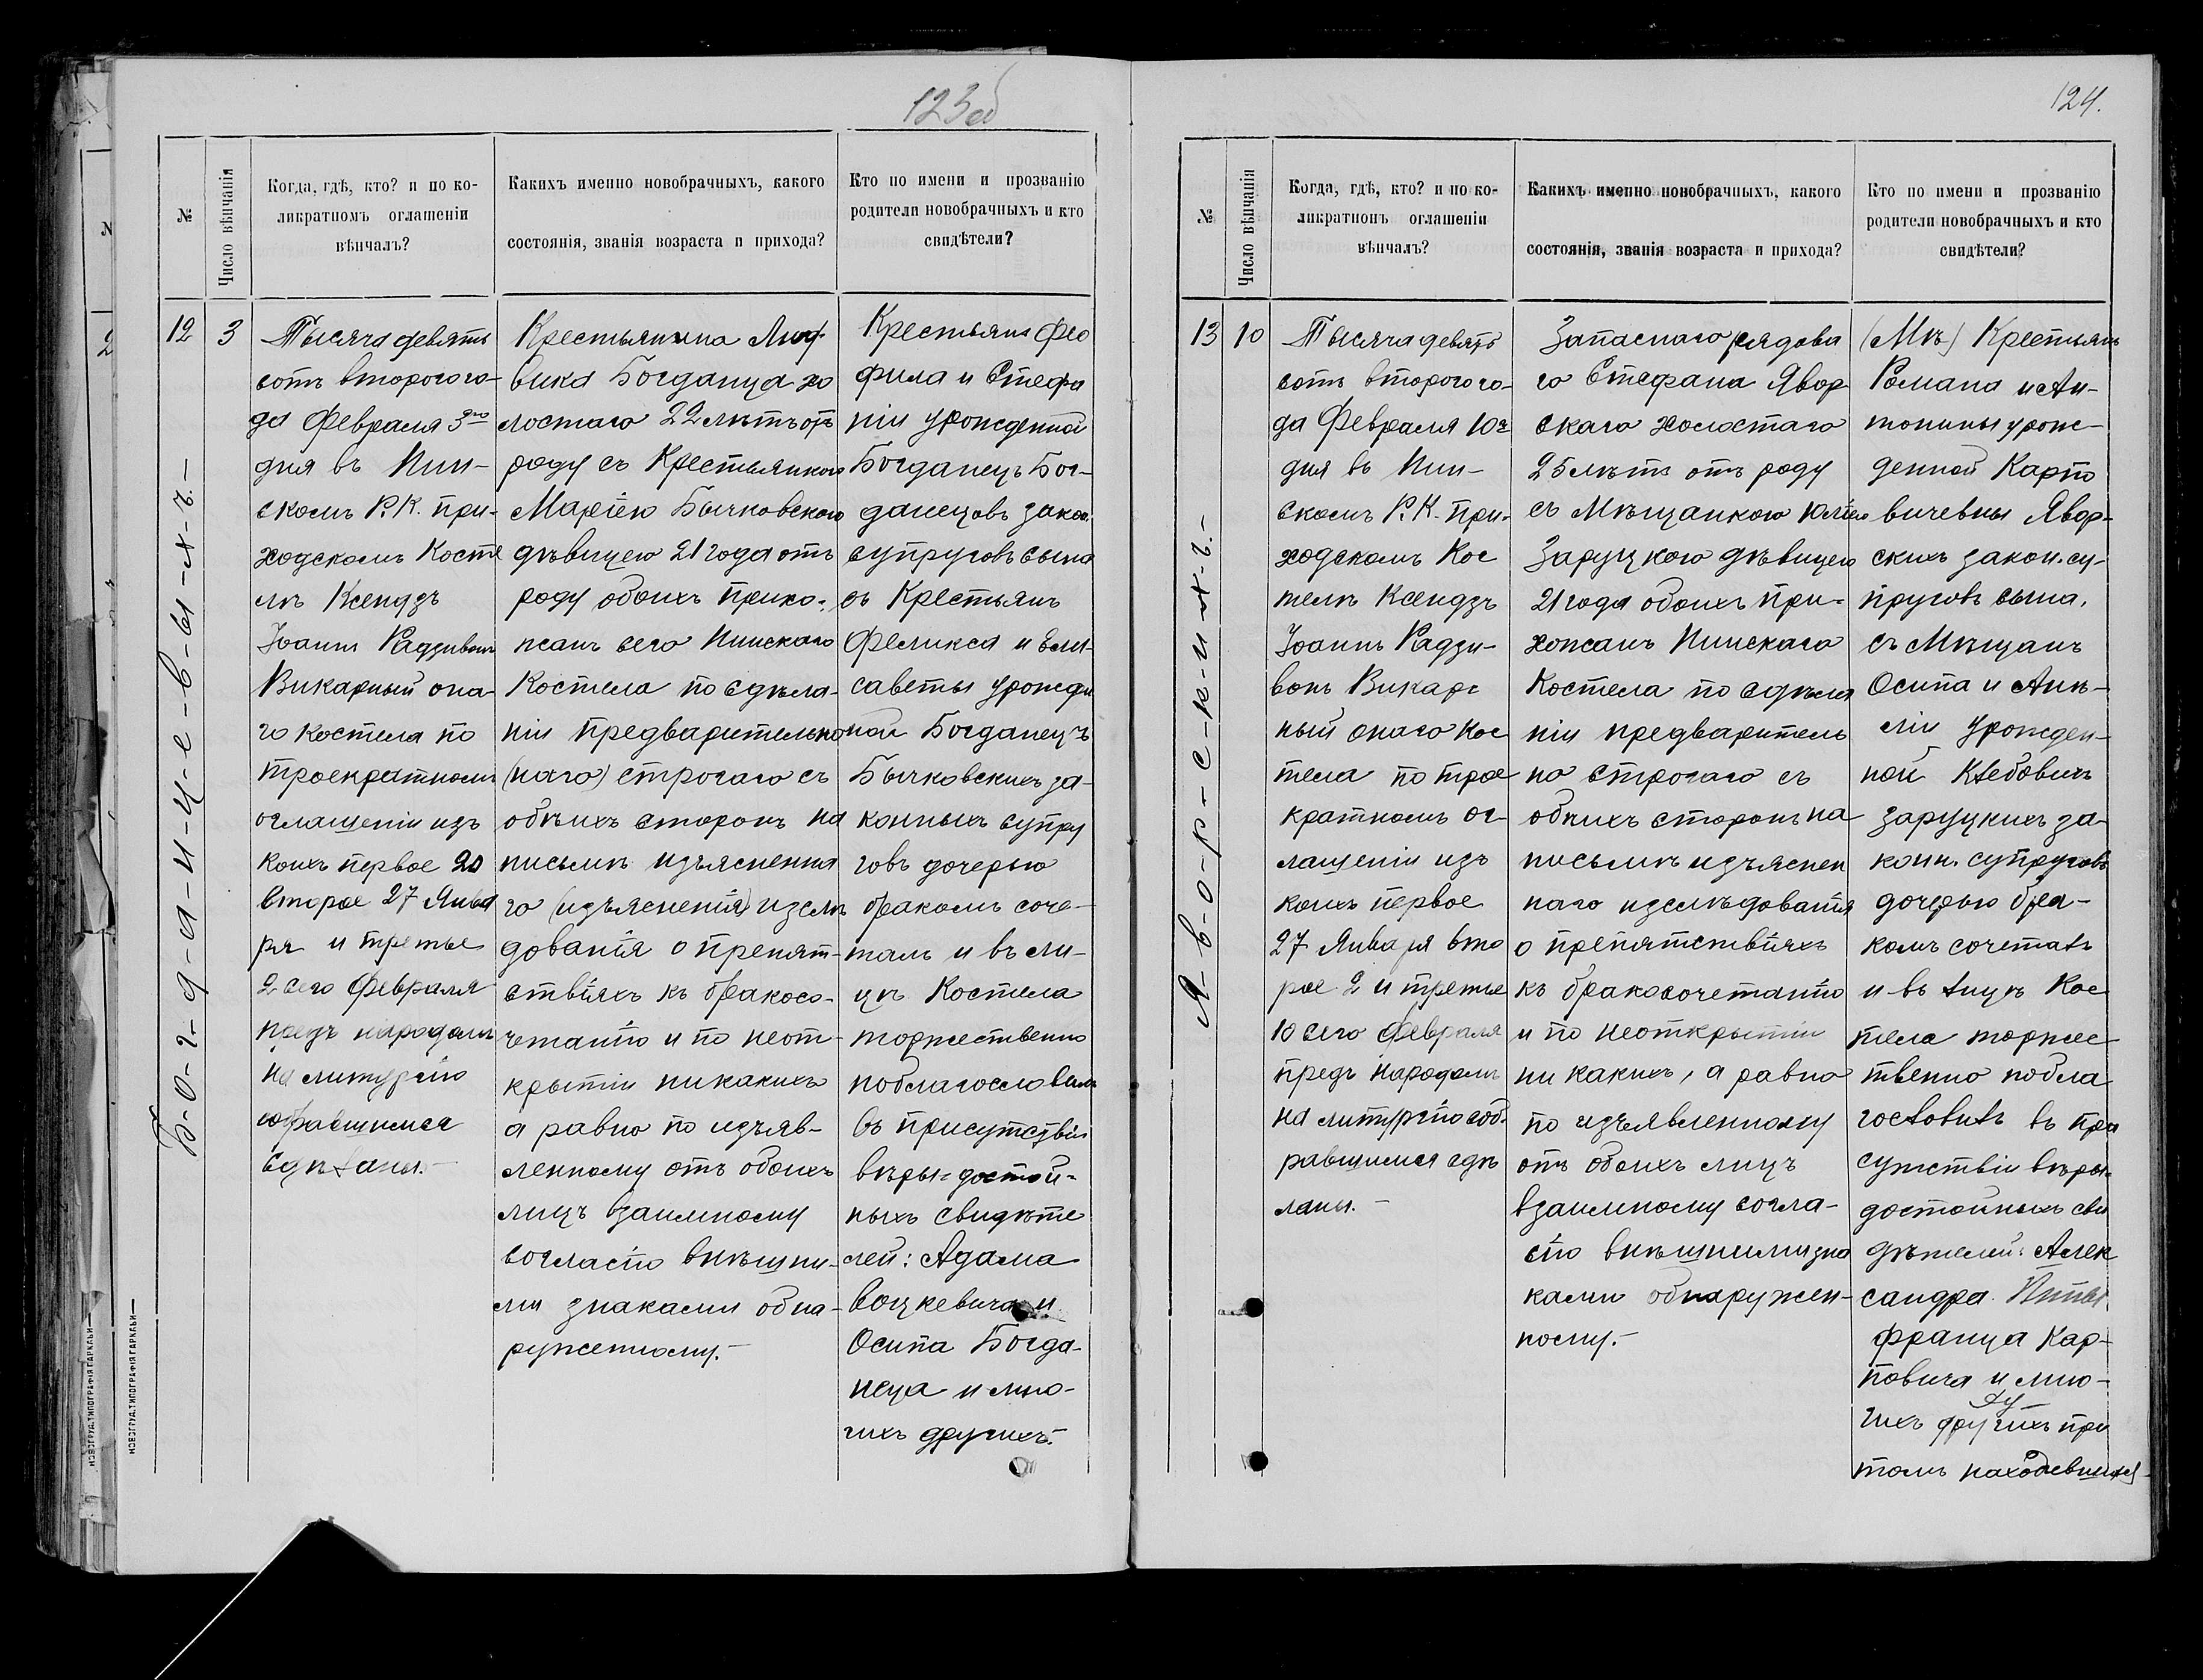 123об
№
Число вѣнчанія
Когда, гдѣ, кто? и по ко-
ликратномъ оглашеніи
вѣнчалъ?
Какихъ именно новобрачныхъ, какого
состоянія, званія возраста и прихода?
Кто по имени и прозванію
родители новобрачныхъ и кто
свидѣтели?
12
3
Б-о-г-д-а-н-ц-е-в-ы-х-ъ.-
Тысяча девять
сотъ второго го-
да Февраля 3го
дня въ Пин-
скомъ Р.К. при-
ходскомъ Косте
лѣ Ксендзъ
Іоаннъ Радзивонъ
Викарный она-
го костела по
троекратномъ
оглашеніи изъ
коихъ первое 20
второе 27 Янва
ря и третье
2 сего Февраля
предъ народомъ
на литургію
собравшимся
сдѣланы.-
Крестьянина Люд
вика Богданца хо
лостаго 22 лѣтъ отъ
роду съ Крестьянкою
Маріею Бычковскою
дѣвицею 21 года отъ
роду обоихъ прихо-
жанъ сего Пинскаго
Костела по сдѣла-
ніи предварительно
(наго) строгаго съ
обѣихъ сторонъ на
письмѣ изъясненна
го (изъясненія) изслѣ
дованія о препят-
ствіяхъ къ бракосо-
четанію и по неот-
крытіи никакихъ
а равно по изъяв-
ленному отъ обоихъ
лицъ взаимному
согласію внѣшни-
ми знаками обна-
руженному.-
Крестьянъ Фео
фила и Стефа
ніи урожденной
Богданецъ Бог-
данецовъ закон.
супруговъ сына
съ Крестьянъ
Феликса и Ели-
саветы урожден
ной Богданецъ
Бычковскихъ за-
конныхъ супру
говъ дочерью
бракомъ соче-
талъ и въ ли-
цѣ Костела
торжественно
поблагословилъ
въ присутствіи
вѣры-достой-
ныхъ свидѣте
лей: Адама
Воцкевича и
Осипа Богда-
неца и мно-
гихъ другихъ.-
НОВОГРУД. ТИПОГРАФІЯ ГАРКАВЫ—
НОВОГРУД. ТИПОГРАФІЯ ГАРКАВЫ—
124.
№
Число вѣнчанія
Когда, гдѣ, кто? и по ко-
ликратномъ оглашеніи
вѣнчалъ?
Какихъ именно новобрачныхъ, какого
состоянія, званія возраста и прихода?
Кто по имени и прозванію
родители новобрачныхъ и кто
свидѣтели?
13
10
Я-в-о-р-с-к-и-х-ъ.-
Тысяча девять
сотъ второго го-
да Февраля 10го
дня въ Пин-
скомъ Р.К. при-
ходскомъ Кос
телѣ Ксендзъ
Іоаннъ Радзи-
вонъ Викар-
ный онаго Кос
тела по трое
кратномъ ог-
лашеніи изъ
коихъ первое
27 Января вто
рое 2 и третье
10 сего Февраля
предъ народомъ
на литургію соб-
равшимся сдѣ
ланы.-
Запаснаго рядова
го Стефана Явор
скаго холостаго
25 лѣтъ отъ роду
съ Мѣщанкою Юліею
Заруцкою дѣвицею
21 года обоихъ при-
хожанъ Пинскаго
Костела по сдѣла
ніи предваритель
но строгаго съ
обѣихъ сторонъ на
письмѣ изъяснен
наго изслѣдованія
о препятствіяхъ
къ бракосочетанію
и по неоткрытіи
ни какихъ, а равно
по изъявленному
отъ обоихъ лицъ
взаимному согла-
сію внѣшними зна
ками обнаружен-
ному.-
(Мѣ) Крестьянъ
Романа и Ан-
тонины урож-
денной Карпо
вичевны Явор-
скихъ закон. су-
пруговъ сына,
съ Мѣщанъ
Осипа и Анѣ-
ліи урожден-
ной
Заруцкихъ за-
конн. супруговъ
дочерью бра-
комъ сочеталъ
и въ лицѣ Кос
тела торжес-
твенно побла
гословилъ въ при
сутствіи вѣры-
достойныхъ сви
дѣтелей: Алек
сандра
Франца Кар-
повича и мно-
гихъ другихъ при
томъ находившихся